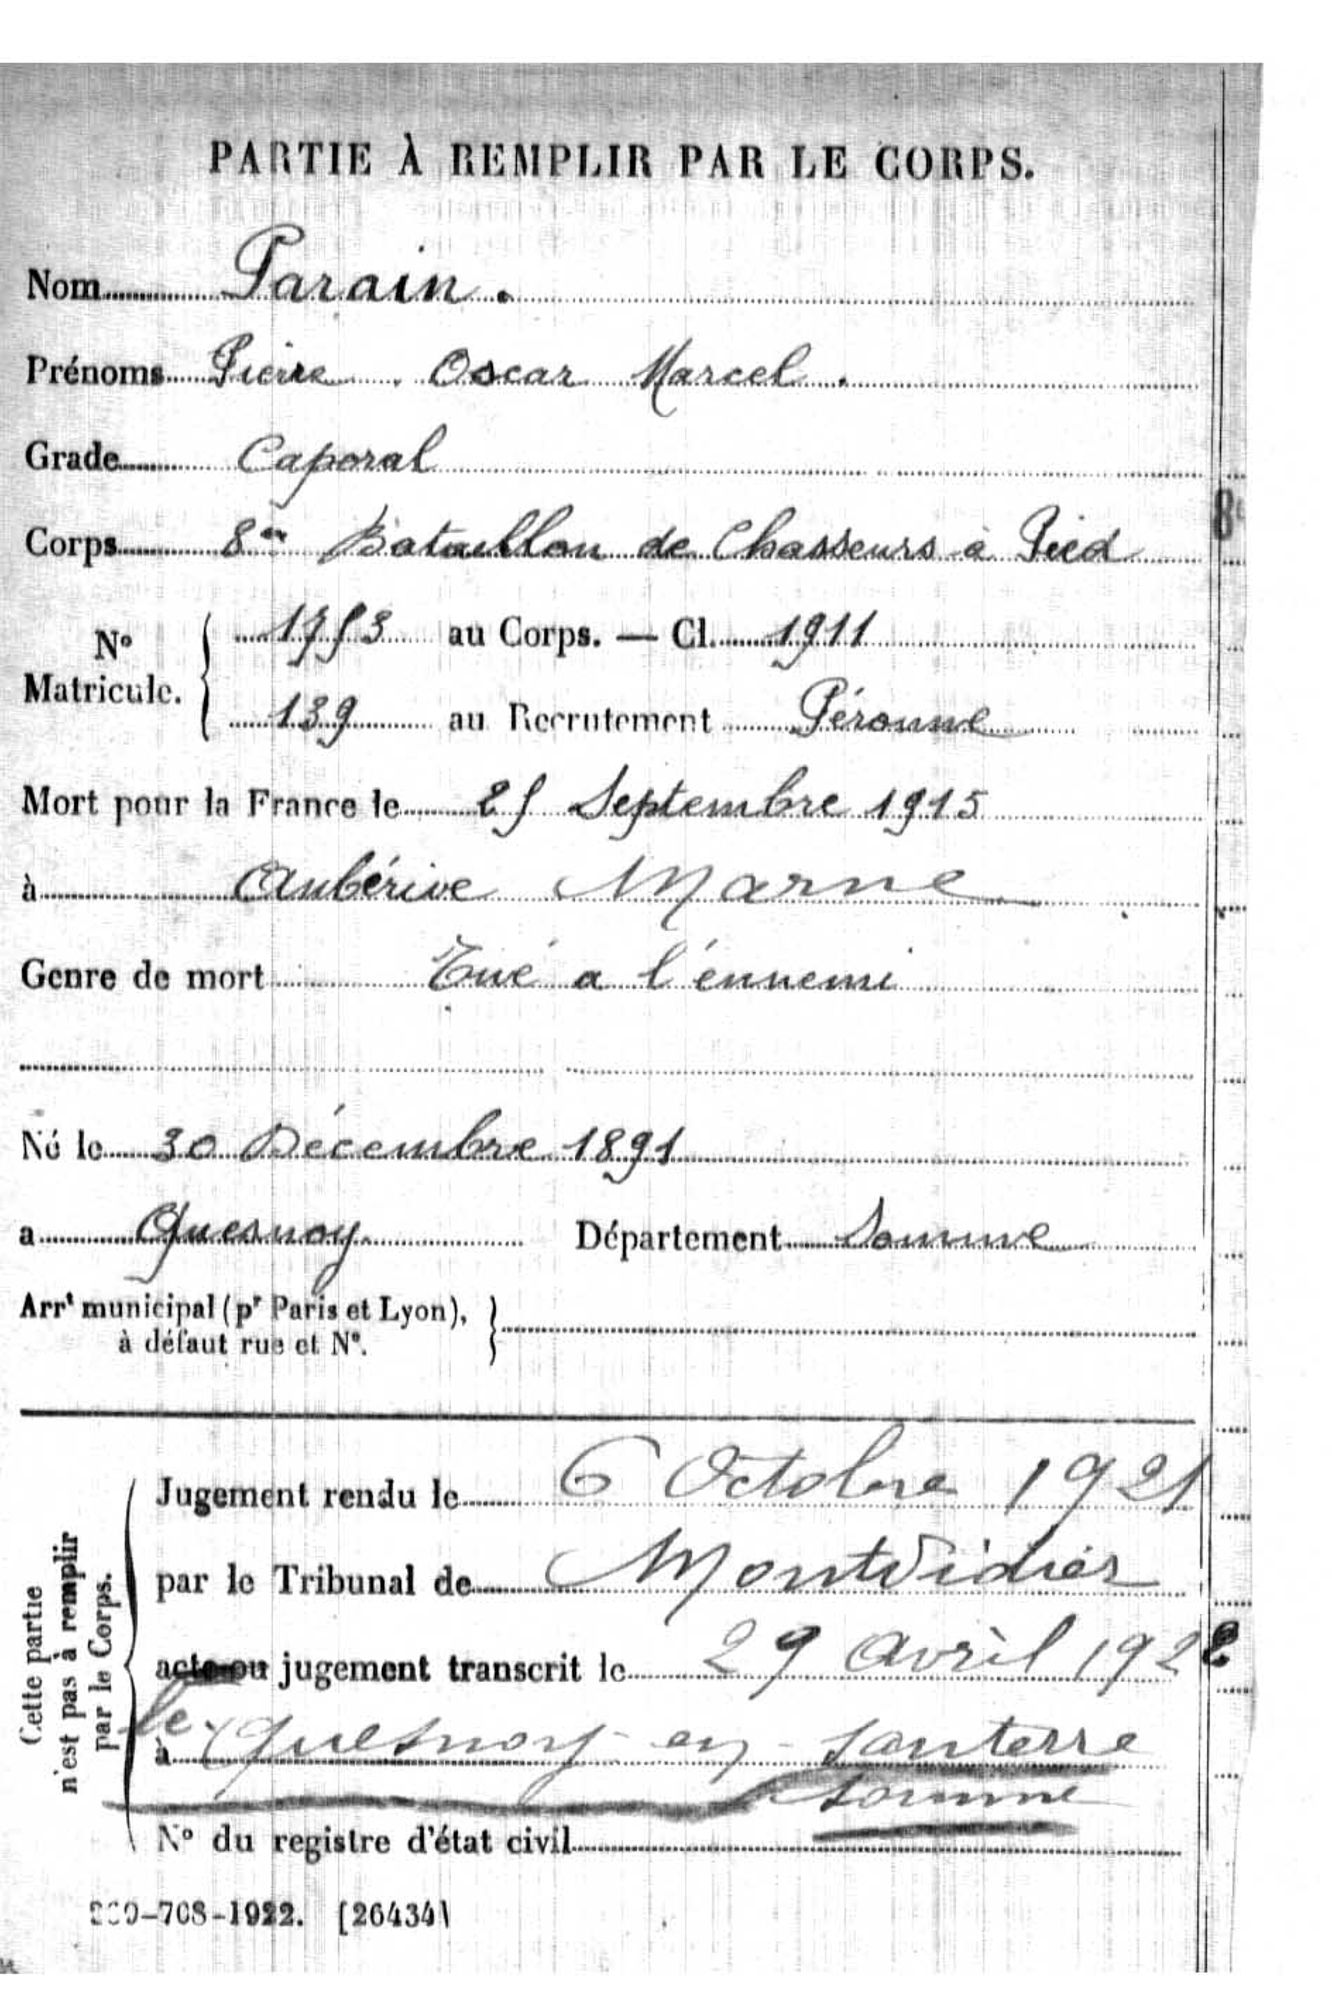 PARTIE À REMPLIR PAR LE CORPS.
Nom Parain.
Prénoms Pierre Oscar Marcel.
Grade Caporal
Corps 8me Bataillon de Chasseurs à Pied
8e
No Matricule. 1753 au Corps. — Cl. 1911
139 au Recrutement Péronne
Mort pour la France le 25 Septembre 1915
à Aubérive Marne
Genre de mort Tué a l'énnemi
Né le 30 Décembre 1891
a Quesnoy Département Somme
Arrt municipal (pr Paris et Lyon),
à défaut rue et N°.
Cette partie
n'est pas à remplir
par le Corps.
Jugement rendu le 6 Octobre 1921
par le Tribunal de Montdidier
acte ou jugement transcrit le 29 avril 1922
à le Quesnoy-en-Santerre
Somme
N° du registre d'état civil
-708-1922. [26434]